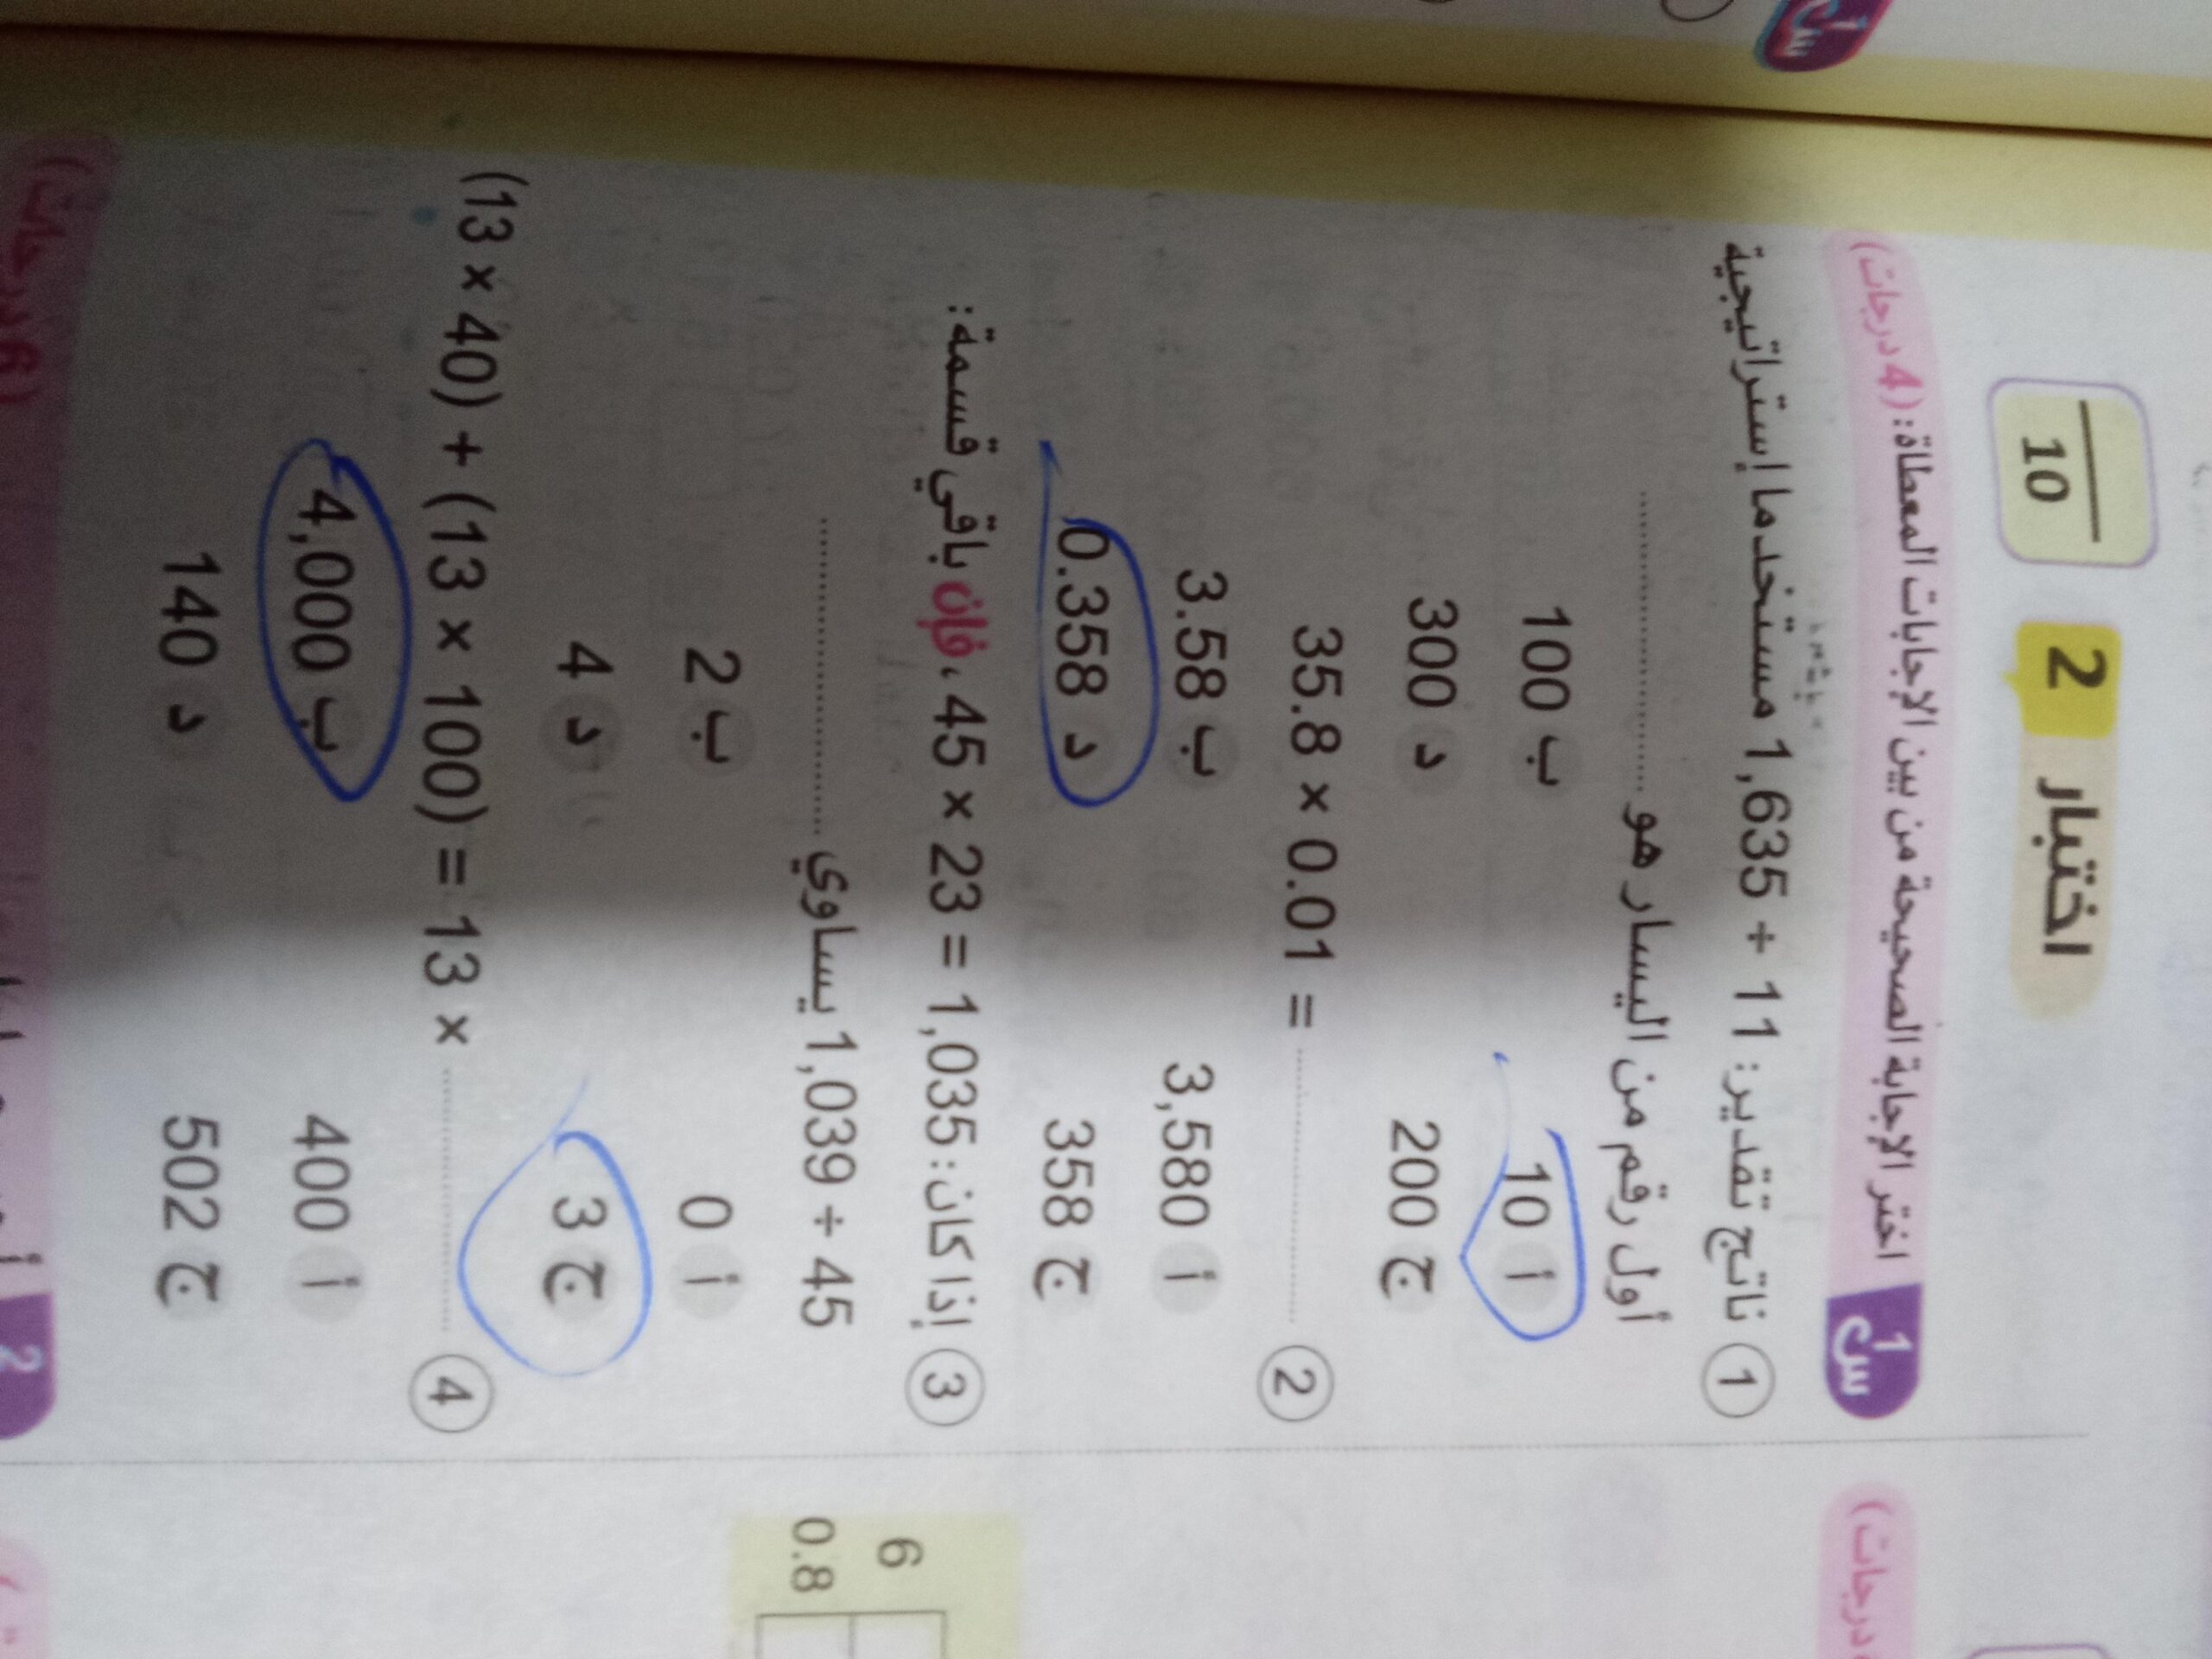 س1
اختبار 2
10
س1 اختر الإجابة الصحيحة من بين الإجابات المعطاة: (4 درجات)
1 ناتج تقدير: 11 ÷ 1,635 مستخدما إستراتيجية
أول رقم من اليسار هو ............
أ 10 ب 100
ج 200 د 300
2 35.8 × 0.01 = ............
أ 3,580 ب 3.58
ج 358 د 0.358
3 إذا كان: 45 × 23 = 1,035 ، فإن باقي قسمة:
1,039 ÷ 45 يساوي ............
أ 0 ب 2
ج 3 د 4
4 (13 × 40) + (13 × 100) = 13 × ............
أ 400 ب 4,000
ج 502 د 140
2
(6 درجات)
درجات)
6
0.8